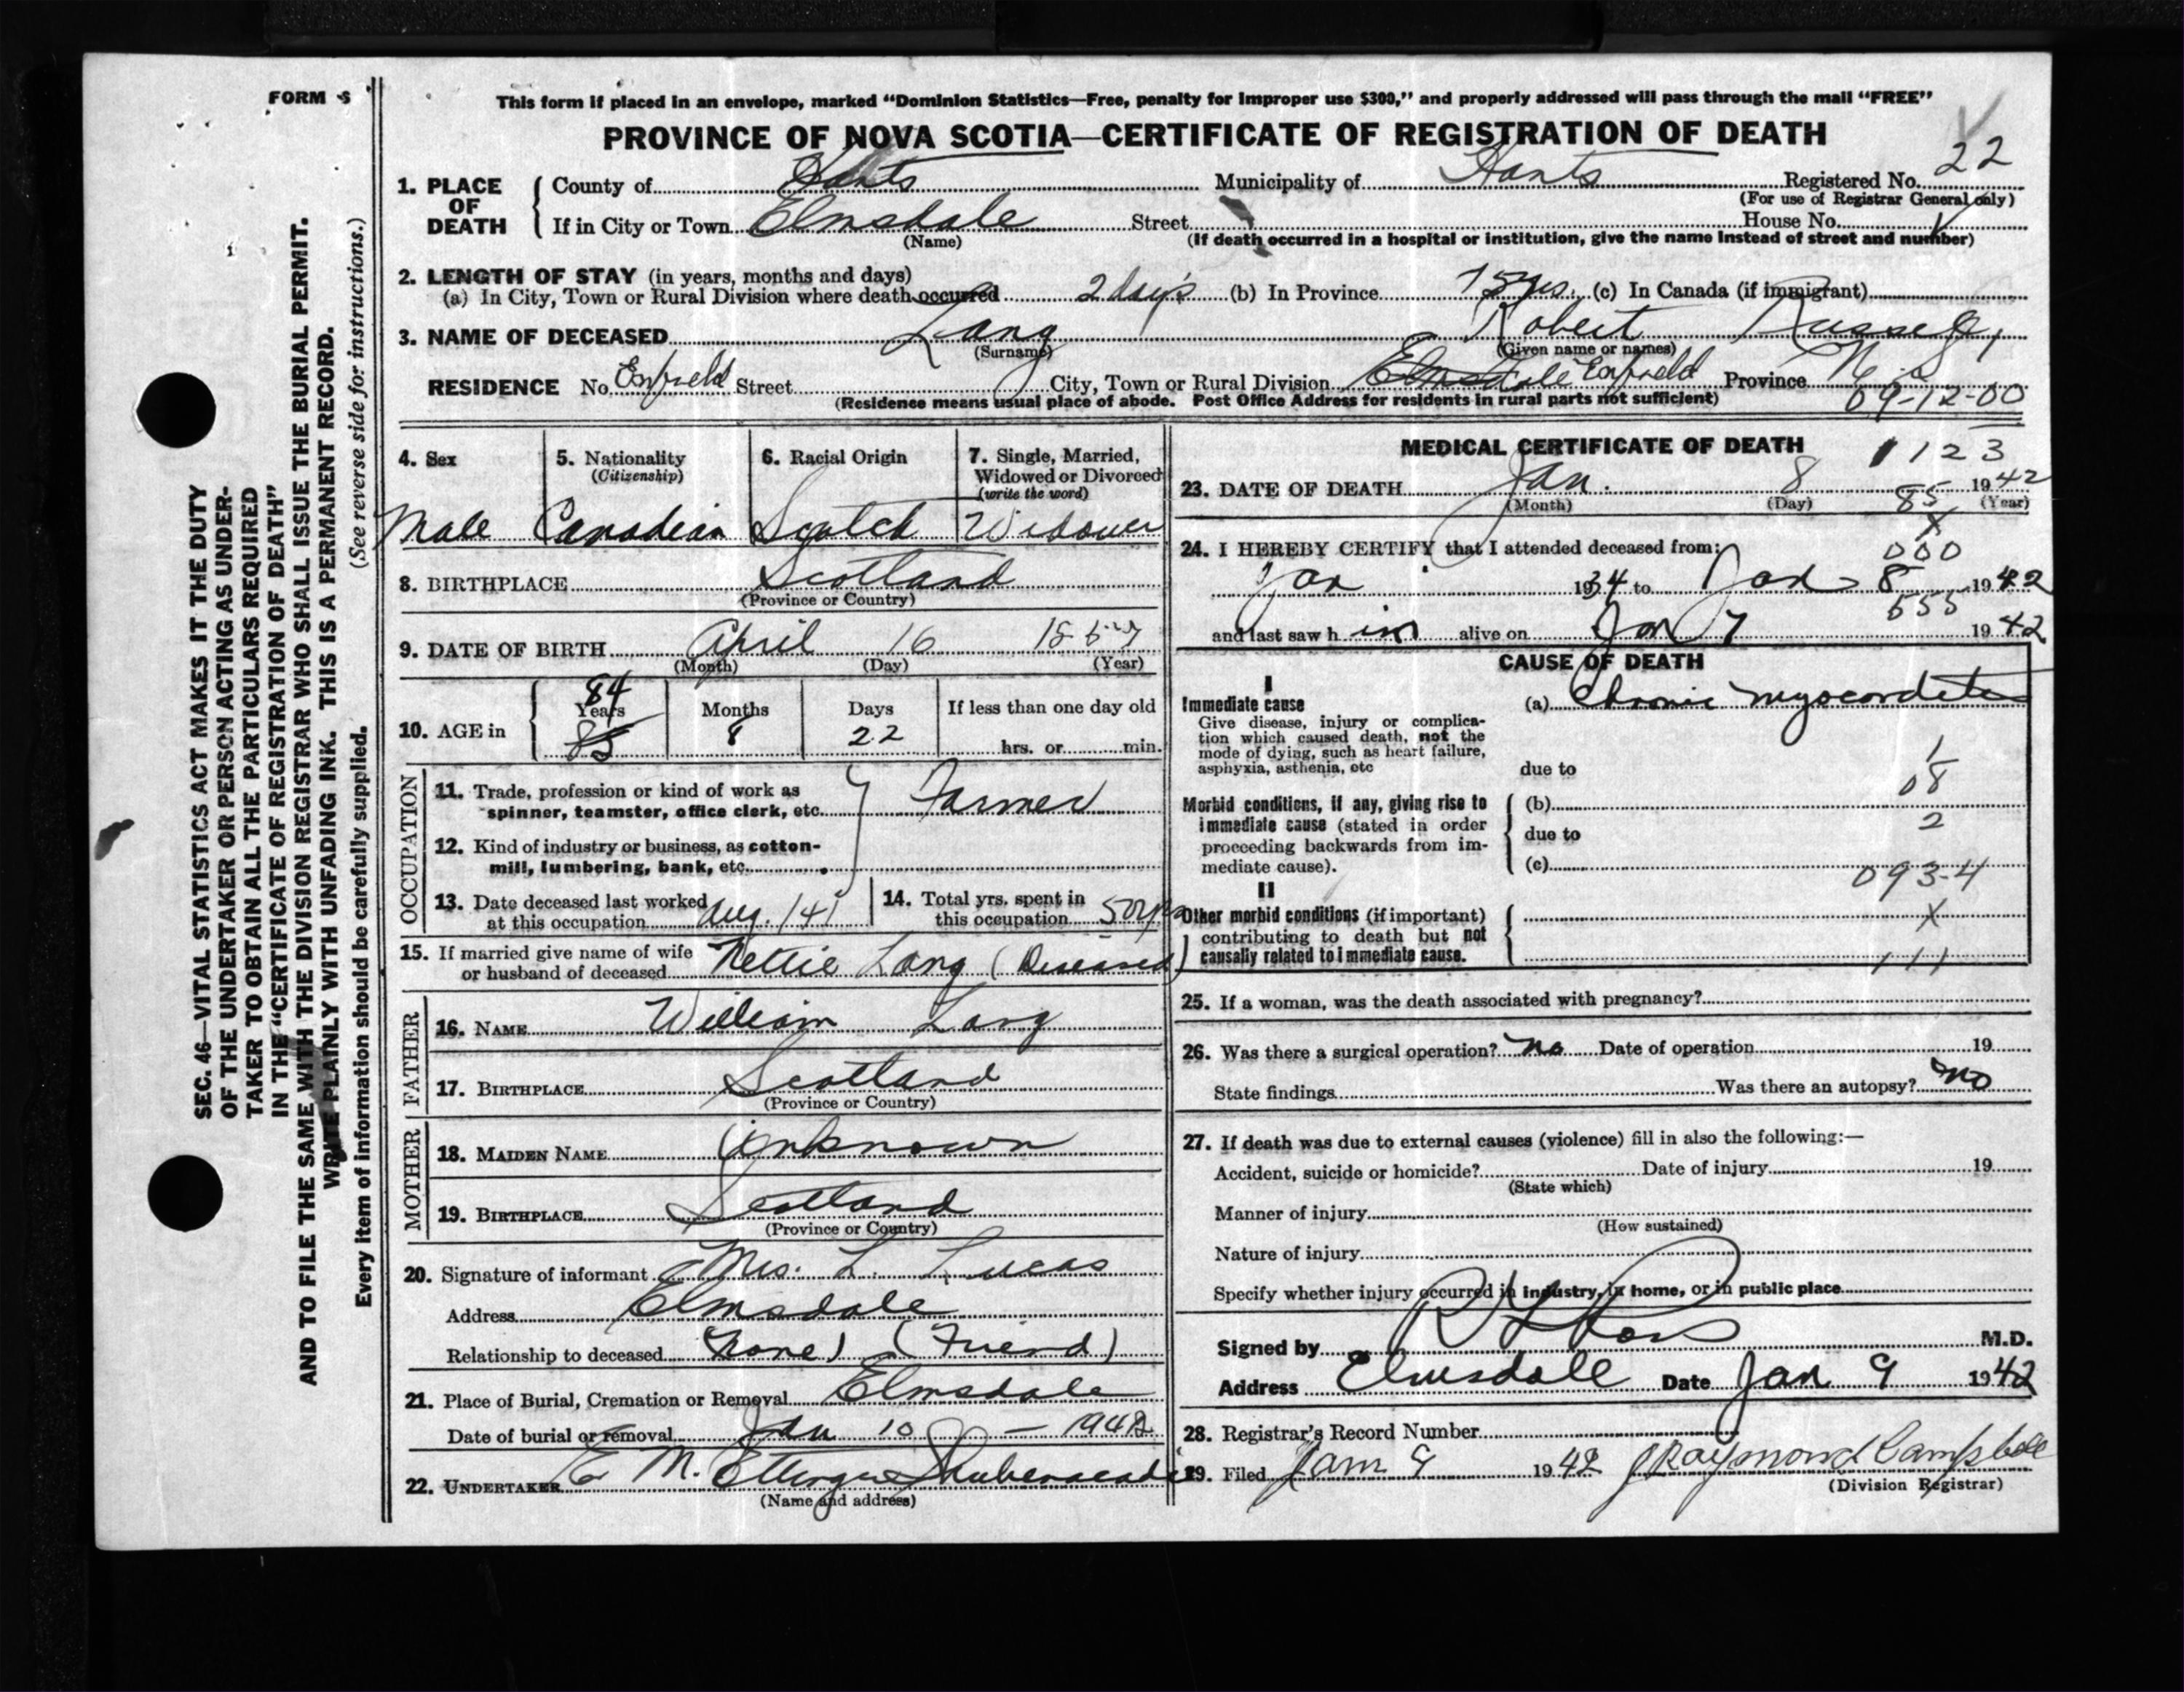 FORM S
This form if placed in an envelope, marked “Dominion Statistics—Free, penalty for improper use $300,” and properly addressed will pass through the mail “FREE”
PROVINCE OF NOVA SCOTIA—CERTIFICATE OF REGISTRATION OF DEATH
1. PLACE OF DEATH
County of Hants Municipality of Hants Registered No. 22
(For use of Registrar General only)
If in City or Town Elmsdale Street House No.
(Name) (If death occurred in a hospital or institution, give the name instead of street and number)
2. LENGTH OF STAY (in years, months and days)
(a) In City, Town or Rural Division where death occurred 2 days (b) In Province 75 yrs. (c) In Canada (if immigrant)
3. NAME OF DECEASED Lang Robert Russell
(Surname) (Given name or names)
RESIDENCE No. Enfield Street City, Town or Rural Division Elmsdale Enfield Province N.S.
(Residence means usual place of abode. Post Office Address for residents in rural parts not sufficient) 09-12-00
4. Sex 5. Nationality (Citizenship) 6. Racial Origin 7. Single, Married, Widowed or Divorced (write the word)
Male Canadian Scotch Widower
8. BIRTHPLACE Scotland
(Province or Country)
9. DATE OF BIRTH April 16 1857
(Month) (Day) (Year)
10. AGE in 84 Years 85 Months 8 Days 22 If less than one day old
hrs. or min.
OCCUPATION
11. Trade, profession or kind of work as spinner, teamster, office clerk, etc. Farmer
12. Kind of industry or business, as cotton-mill, lumbering, bank, etc.
13. Date deceased last worked at this occupation Aug. /41 14. Total yrs. spent in this occupation 50 yrs
15. If married give name of wife or husband of deceased Nettie Lang (Deceased)
FATHER
16. NAME William Lang
17. BIRTHPLACE Scotland
(Province or Country)
MOTHER
18. MAIDEN NAME Unknown
19. BIRTHPLACE Scotland
(Province or Country)
20. Signature of informant Mrs. L. Lucas
Address Elmsdale
Relationship to deceased None) (Friend)
21. Place of Burial, Cremation or Removal Elmsdale
Date of burial or removal Jan 10 – 1942
22. UNDERTAKER E M. Ettinger Shubenacadie
(Name and address)
MEDICAL CERTIFICATE OF DEATH 1123
23. DATE OF DEATH Jan. 8 1942
(Month) (Day) 85 (Year)
X
24. I HEREBY CERTIFY that I attended deceased from: 000
Jan 1934 to Jan 8 1942
555
and last saw him alive on Jan 7 1942
CAUSE OF DEATH
I
Immediate cause (a) Chronic myocarditis
Give disease, injury or complication which caused death, not the mode of dying, such as heart failure, asphyxia, asthenia, etc
due to
1
08
Morbid conditions, if any, giving rise to immediate cause (stated in order proceeding backwards from immediate cause).
(b)
2
due to
(c)
093-4
II
Other morbid conditions (if important) contributing to death but not causally related to immediate cause.
X
111
25. If a woman, was the death associated with pregnancy?
26. Was there a surgical operation? no Date of operation 19
State findings Was there an autopsy? no
27. If death was due to external causes (violence) fill in also the following:—
Accident, suicide or homicide? Date of injury 19
(State which)
Manner of injury
(How sustained)
Nature of injury
Specify whether injury occurred in industry, in home, or in public place
Signed by M.D.
Address Elmsdale Date Jan 9 1942
28. Registrar's Record Number
29. Filed Jan 9 1942 J Raymond Campbell
(Division Registrar)
SEC. 46—VITAL STATISTICS ACT MAKES IT THE DUTY
OF THE UNDERTAKER OR PERSON ACTING AS UNDER-
TAKER TO OBTAIN ALL THE PARTICULARS REQUIRED
IN THE “CERTIFICATE OF REGISTRATION OF DEATH”
AND TO FILE THE SAME WITH THE DIVISION REGISTRAR WHO SHALL ISSUE THE BURIAL PERMIT.
WRITE PLAINLY WITH UNFADING INK. THIS IS A PERMANENT RECORD.
Every item of information should be carefully supplied. (See reverse side for instructions.)